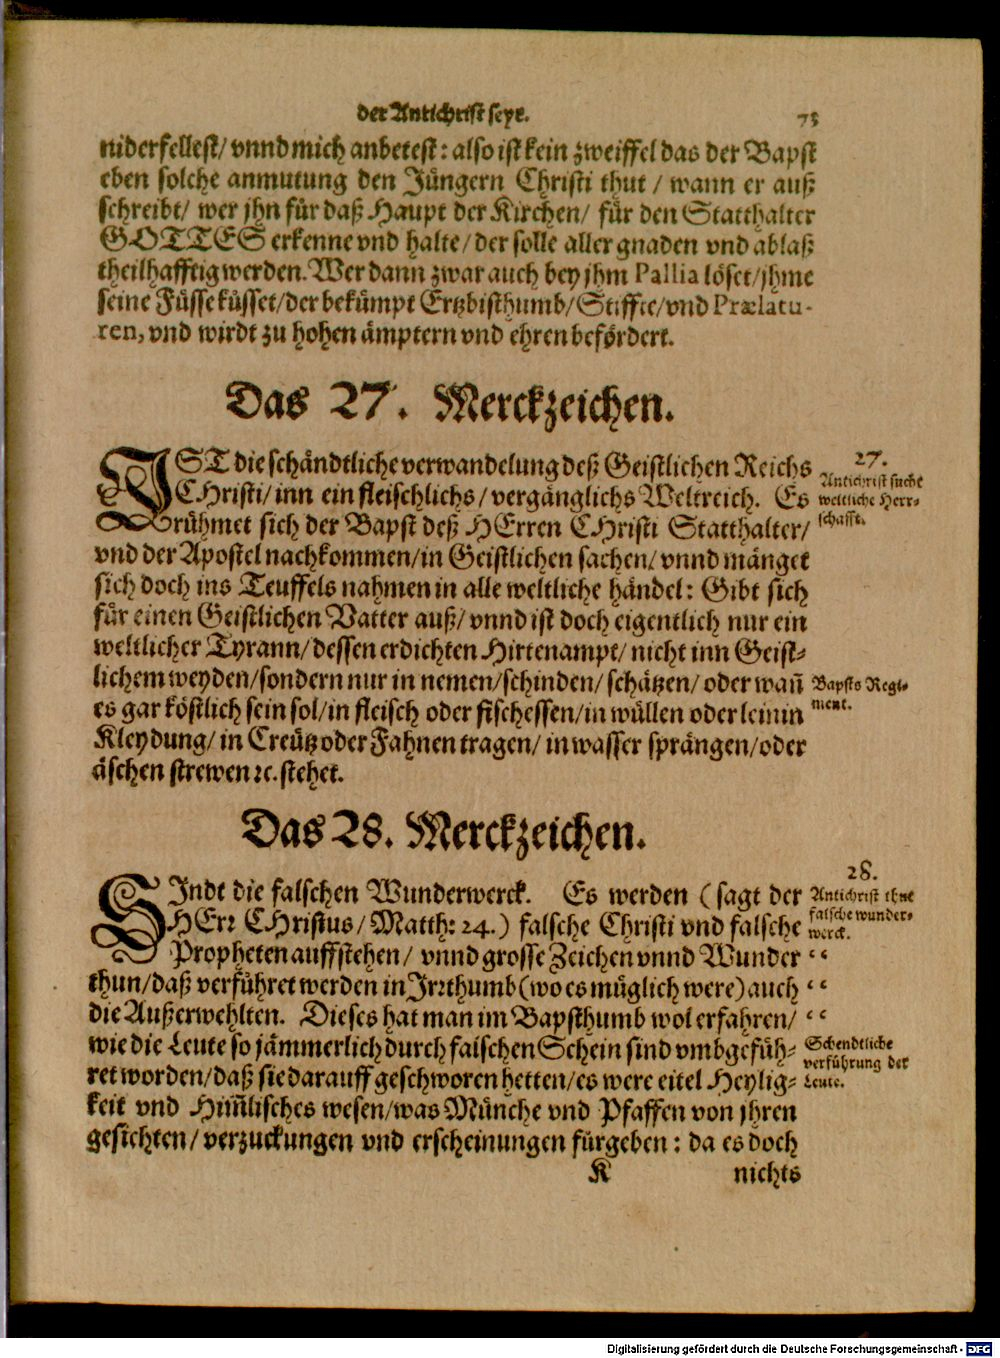 der Antichrist seye. 73
niderfellest/ vnnd mich anbetest: also ist kein zweiffel das der Bapst
eben solche anmutung den Jüngern Christi thut / wann er auß
schreibt/ wer jhn für daß Haupt der Kirchen/ für den Statthalter
GOTTES erkenne vnd halte/ der solle aller gnaden vnd ablaß
theilhafftig werden. Wer dann zwar auch bey jhm Pallia löset/ jhme
seine Füsse küsset/ der bekümpt Ertzbisthumb/ Stiffte/ vnd Prælatu-
ren, vnd wirdt zu hohen ämptern vnd ehren befördert.
Das 27. Merckzeichen.
IST die schändtliche verwandelung deß Geistlichen Reichs
CHristi/ inn ein fleischlichs/ vergänglichs Weltreich. Es
rühmet sich der Bapst deß HErren CHristi Statthalter/
vnd der Apostel nachkommen/ in Geistlichen sachen/ vnnd mänget
sich doch ins Teuffels nahmen in alle weltliche händel: Gibt sich
für einen Geistlichen Vatter auß/ vnnd ist doch eigentlich nur ein
weltlicher Tyrann/ dessen erdichten Hirtenampt/ nicht inn Geist-
lichem weyden/ sondern nur in nemen/ schinden/ schätzen/ oder wañ
es gar köstlich sein sol/ in fleisch oder fischessen/ in wüllen oder leinin
Kleydung/ in Creütz oder Fahnen tragen/ in wasser sprängen/ oder
äschen strewen ꝛc. stehet.
27.
Antichrist sucht
weltliche Herr-
schafft.
Bapsts Regi-
ment.
Das 28. Merckzeichen.
SIndt die falschen Wunderwerck. Es werden ( sagt der
HErꝛ CHristus/ Matth: 24. ) falsche Christi vnd falsche
Propheten auffstehen/ vnnd grosse Zeichen vnnd Wunder
thun/ daß verführet werden in Jrꝛthumb (wo es müglich were) auch
die Außerwehlten. Dieses hat man im Bapsthumb wol erfahren/
wie die Leute so jämmerlich durch falschen Schein sind vmbgefüh-
ret worden/ daß sie darauff geschworen hetten/ es were eitel Heylig-
keit vnd Him̃lisches wesen/ was Münche vnd Pfaffen von jhren
gesichten/ verzuckungen vnd erscheinungen fürgeben: da es doch
28.
Antichrist thut
falsche wunder-
werck.
“
“
“
Schendtliche
verführung der
Leute.
K nichts
Digitalisierung gefördert durch die Deutsche Forschungsgemeinschaft - DFG